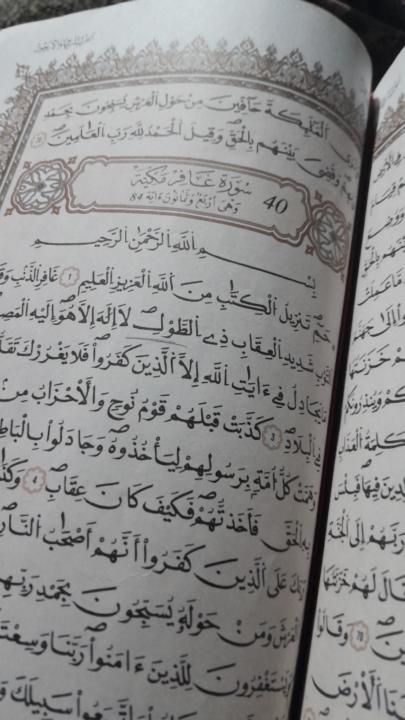 إِلَىٰ جَهَنَّمَ
خَزَنَتُهَا
كُمْ وَيُنذِرُونَكُمْ
كَلِمَةُ الْعَذَابِ
خَٰلِدِينَ فِيهَا فَبِيسَ
رَبَّهُمْ إِلَى الْجَنَّةِ
قَالَ لَهُمْ خَزَنَتُهَا
وَقَالُوا
نَا الْأَرْضَ
الْمَلَٰٓئِكَةَ حَآفِّينَ مِنْ حَوْلِ الْعَرْشِ يُسَبِّحُونَ بِحَمْدِ
رَبِّهِمْ وَقُضِيَ بَيْنَهُم بِالْحَقِّ وَقِيلَ الْحَمْدُ لِلهِ رَبِّ الْعَٰلَمِينَ
40 سُورَةُ غَافِرٍ مَكِّيَّة
وَهْيَ أَرْبَعٌ وَثَمَانُونَ ءَايَة 84
بِسْمِ اللَّهِ الرَّحْمَٰنِ الرَّحِيمِ
حَمِٓ تَنزِيلُ الْكِتَٰبِ مِنَ اللَّهِ الْعَزِيزِ الْعَلِيمِ 1 غَافِرِ الذَّنبِ وَقَ
التَّوْبِ شَدِيدِ الْعِقَابِ ذِي الطَّوْلِ لَآ إِلَٰهَ إِلَّا هُوَ إِلَيْهِ الْمَصِ
مَا يُجَٰدِلُ فِيٓ ءَايَٰتِ اللَّهِ إِلَّا الَّذِينَ كَفَرُوا فَلَا يَغْرُرْكَ تَقَلُّ
فِي الْبِلَٰدِ 3 كَذَّبَتْ قَبْلَهُمْ قَوْمُ نُوحٍ وَالْأَحْزَابُ مِن
وَهَمَّتْ كُلُّ أُمَّةٍ بِرَسُولِهِمْ لِيَأْخُذُوهُ وَجَٰدَلُوا بِالْبَٰطِ
بِهِ الْحَقَّ فَأَخَذتُّهُمْ فَكَيْفَ كَانَ عِقَابِ 4 وَكَذَ
رَبِّكَ عَلَى الَّذِينَ كَفَرُوٓا أَنَّهُمْ أَصْحَٰبُ النَّارِ
الْعَرْشَ وَمَنْ حَوْلَهُ يُسَبِّحُونَ بِحَمْدِ رَبِّهِمْ
وَيَسْتَغْفِرُونَ لِلَّذِينَ ءَامَنُوا رَبَّنَا وَسِعْتَ
سَبِيلَكَ وَ